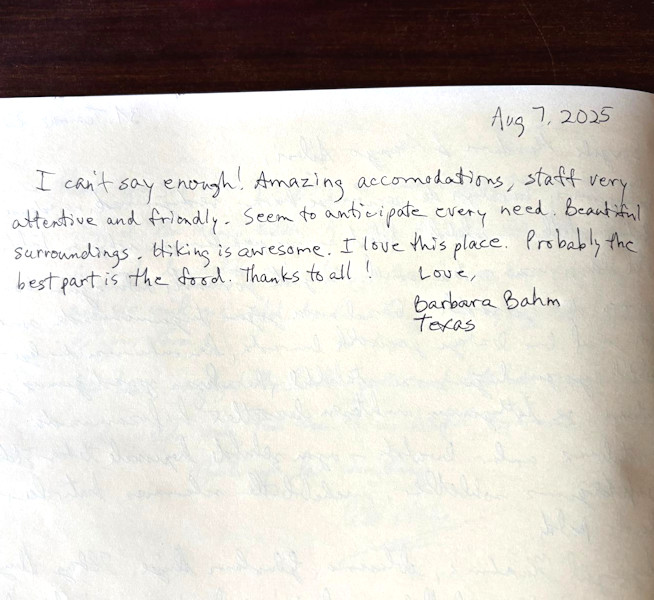 Aug 7, 2025
I can't say enough! Amazing accomodations, staff very
attentive and friendly. Seem to anticipate every need. Beautiful
surroundings. Hiking is awesome. I love this place. Probably the
best part is the food. Thanks to all! Love,
Barbara Bahm
Texas